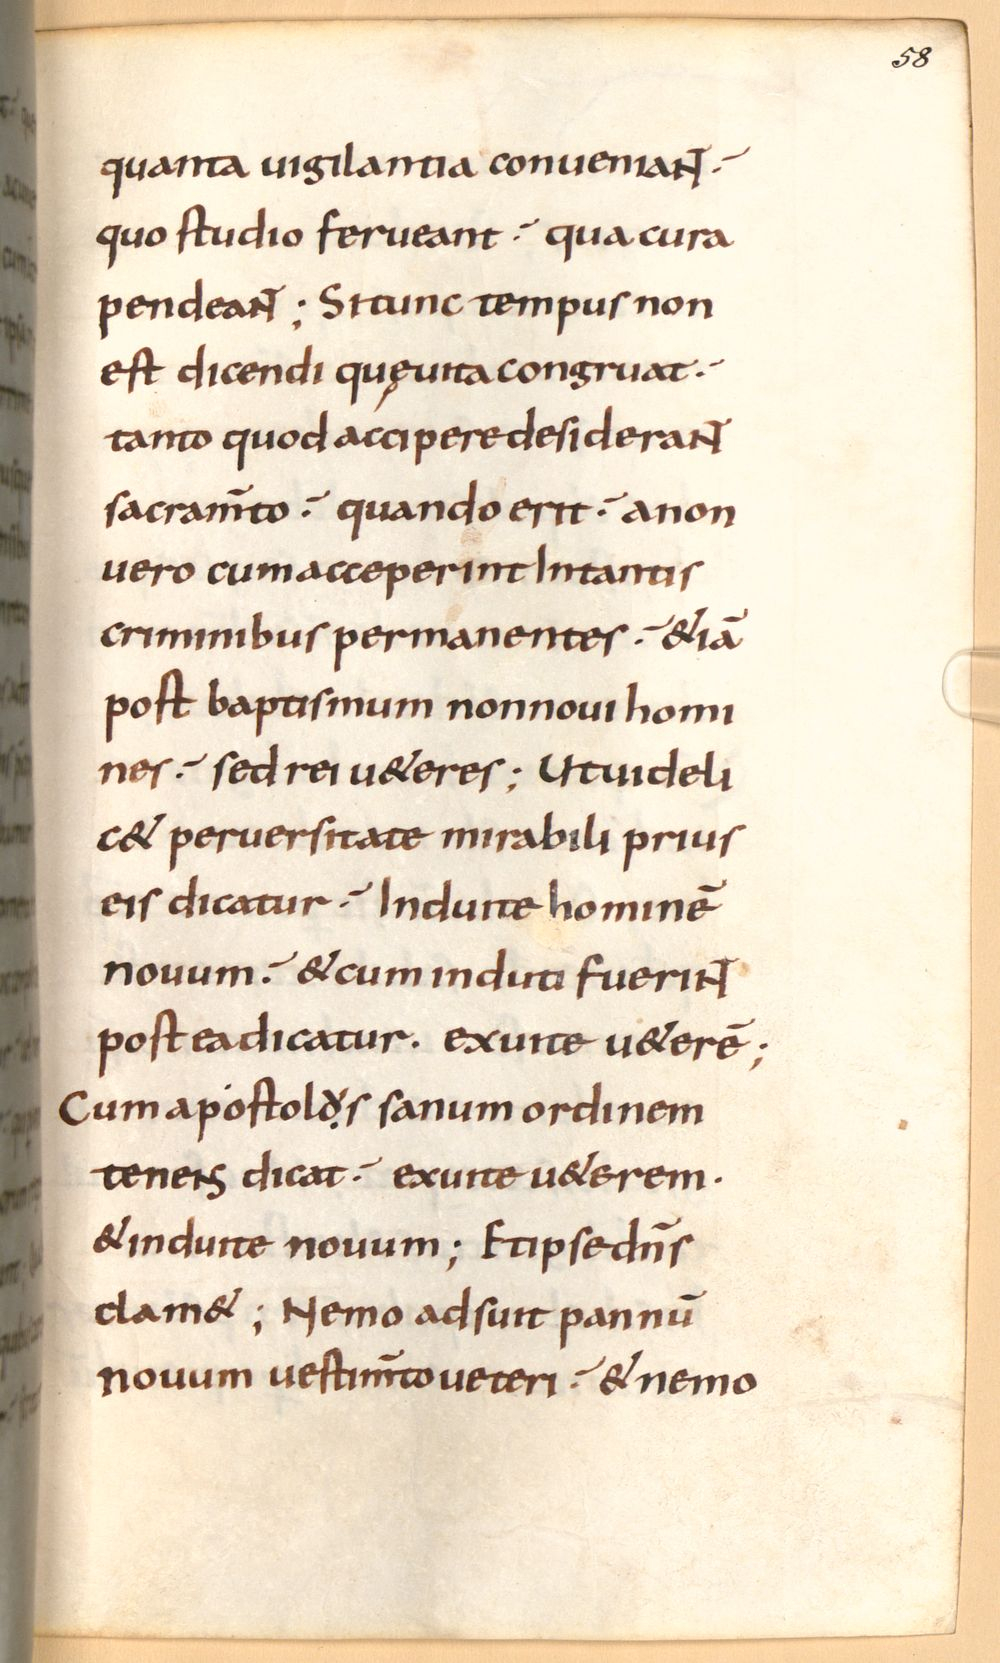 58
quanta uigilantia conueniant·
quo studio ferueant· qua cura
pendeant; Si tunc tempus non
est dicendi quę uita congruat·
tanto quod accipere desiderant
sacram̄to· quando erit· an non
uero cum acceperint In tantis
criminibus permanentes· & iā
post baptismum non noui homi
nes· sed rei u&eres; Ut uideli
c& peruersitate mirabili prius
eis dicatur· Induite hominē
nouum· & cum induti fuerint
postea dicatur. exuite u&erē;
Cum apostolọ̌s sanum ordinem
tenens dicat· exuite u&erem·
& induite nouum; Et ipse dn̄s
clam&; Nemo adsuit pannū
nouum uestim̄to ueteri· & nemo